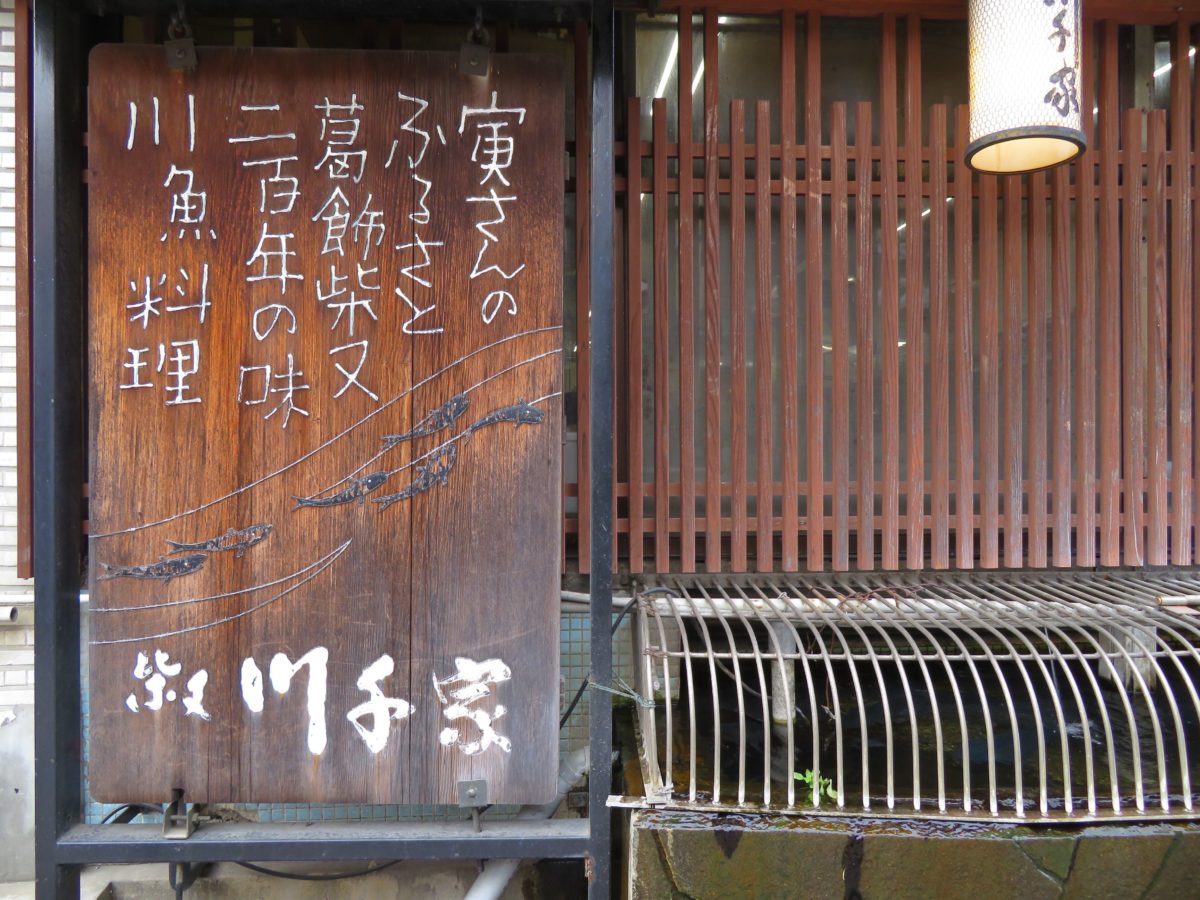 寅さんの
ふるさと
葛飾柴又
二百年の味
川魚料理
川千家
川千家